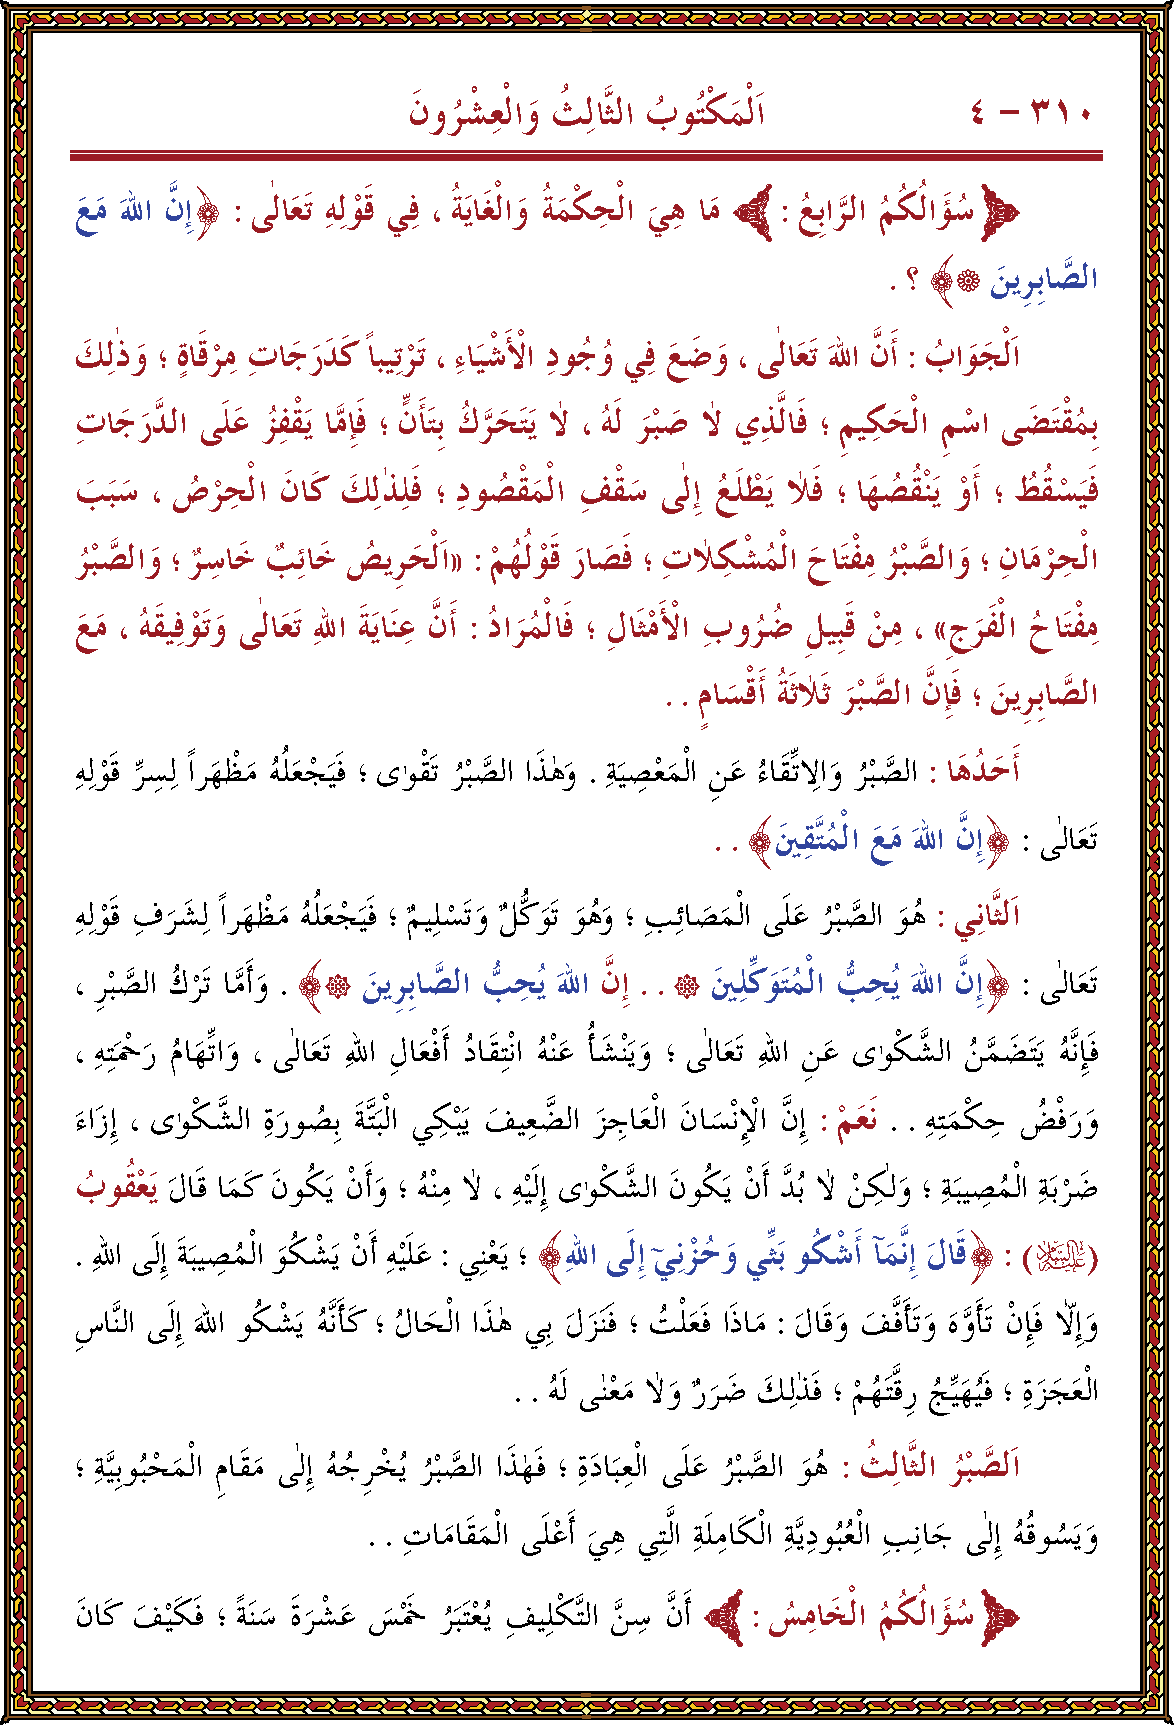 ٣١٠ – ٤ اَلْمَكْتُوبُ الثَّالِثُ وَالْعِشْرُونَ
سُؤَالُكُمُ الرَّابِعُ : مَا هِيَ الْحِكْمَةُ وَالْغَايَةُ ، فِي قَوْلِهِ تَعَالٰى : ﴿إِنَّ اللهَ مَعَ
الصَّابِرِينَ ۞﴾ ؟ .
اَلْجَوَابُ : أَنَّ اللهَ تَعَالٰى ، وَضَعَ فِي وُجُودِ الْأَشْيَاءِ ، تَرْتِيباً كَدَرَجَاتِ مِرْقَاةٍ ؛ وَذٰلِكَ
بِمُقْتَضَى اسْمِ الْحَكِيمِ ؛ فَالَّذِي لَا صَبْرَ لَهُ ، لَا يَتَحَرَّكُ بِتَأَنٍّ ؛ فَإِمَّا يَقْفِزُ عَلَى الدَّرَجَاتِ
فَيَسْقُطُ ؛ أَوْ يَنْقُصُهَا ؛ فَلَا يَطْلَعُ إِلٰى سَقْفِ الْمَقْصُودِ ؛ فَلِذٰلِكَ كَانَ الْحِرْصُ ، سَبَبَ
الْحِرْمَانِ ؛ وَالصَّبْرُ مِفْتَاحَ الْمُشْكِلَاتِ ؛ فَصَارَ قَوْلُهُمْ : «اَلْحَرِيصُ خَائِبٌ خَاسِرٌ ؛ وَالصَّبْرُ
مِفْتَاحُ الْفَرَجِ» ، مِنْ قَبِيلِ ضُرُوبِ الْأَمْثَالِ ؛ فَالْمُرَادُ : أَنَّ عِنَايَةَ اللهِ تَعَالٰى وَتَوْفِيقَهُ ، مَعَ
الصَّابِرِينَ ؛ فَإِنَّ الصَّبْرَ ثَلَاثَةُ أَقْسَامٍ . .
أَحَدُهَا : الصَّبْرُ وَالِاتِّقَاءُ عَنِ الْمَعْصِيَةِ . وَهٰذَا الصَّبْرُ تَقْوٰى ؛ فَيَجْعَلُهُ مَظْهَراً لِسِرِّ قَوْلِهِ
تَعَالٰى : ﴿إِنَّ اللهَ مَعَ الْمُتَّقِينَ﴾ . .
اَلثَّانِي : هُوَ الصَّبْرُ عَلَى الْمَصَائِبِ ؛ وَهُوَ تَوَكُّلٌ وَتَسْلِيمٌ ؛ فَيَجْعَلُهُ مَظْهَراً لِشَرَفِ قَوْلِهِ
تَعَالٰى : ﴿إِنَّ اللهَ يُحِبُّ الْمُتَوَكِّلِينَ ۞ . . إِنَّ اللهَ يُحِبُّ الصَّابِرِينَ ۞﴾ . وَأَمَّا تَرْكُ الصَّبْرِ ،
فَإِنَّهُ يَتَضَمَّنُ الشَّكْوٰى عَنِ اللهِ تَعَالٰى ؛ وَيَنْشَأُ عَنْهُ انْتِقَادُ أَفْعَالِ اللهِ تَعَالٰى ، وَاتِّهَامُ رَحْمَتِهِ ،
وَرَفْضُ حِكْمَتِهِ . . نَعَمْ : إِنَّ الْإِنْسَانَ الْعَاجِزَ الضَّعِيفَ يَبْكِي الْبَتَّةَ بِصُورَةِ الشَّكْوٰى ، إِزَاءَ
ضَرْبَةِ الْمُصِيبَةِ ؛ وَلٰكِنْ لَا بُدَّ أَنْ يَكُونَ الشَّكْوٰى إِلَيْهِ ، لَا مِنْهُ ؛ وَأَنْ يَكُونَ كَمَا قَالَ يَعْقُوبُ
(عَلَيْهِ السَّلَامُ) : ﴿قَالَ إِنَّمَآ أَشْكُو بَثِّي وَحُزْنِيٓ إِلَى اللهِ﴾ ؛ يَعْنِي : عَلَيْهِ أَنْ يَشْكُوَ الْمُصِيبَةَ إِلَى اللهِ .
وَإِلَّا فَإِنْ تَأَوَّهَ وَتَأَفَّفَ وَقَالَ : مَاذَا فَعَلْتُ ؛ فَنَزَلَ بِي هٰذَا الْحَالُ ؛ كَأَنَّهُ يَشْكُو اللهَ إِلَى النَّاسِ
الْعَجَزَةِ ؛ فَيُهَيِّجُ رِقَّتَهُمْ ؛ فَذٰلِكَ ضَرَرٌ وَلَا مَعْنٰى لَهُ . .
اَلصَّبْرُ الثَّالِثُ : هُوَ الصَّبْرُ عَلَى الْعِبَادَةِ ؛ فَهٰذَا الصَّبْرُ يُخْرِجُهُ إِلٰى مَقَامِ الْمَحْبُوبِيَّةِ ؛
وَيَسُوقُهُ إِلٰى جَانِبِ الْعُبُودِيَّةِ الْكَامِلَةِ الَّتِي هِيَ أَعْلَى الْمَقَامَاتِ . .
سُؤَالُكُمُ الْخَامِسُ : أَنَّ سِنَّ التَّكْلِيفِ يُعْتَبَرُ خَمْسَ عَشْرَةَ سَنَةً ؛ فَكَيْفَ كَانَ